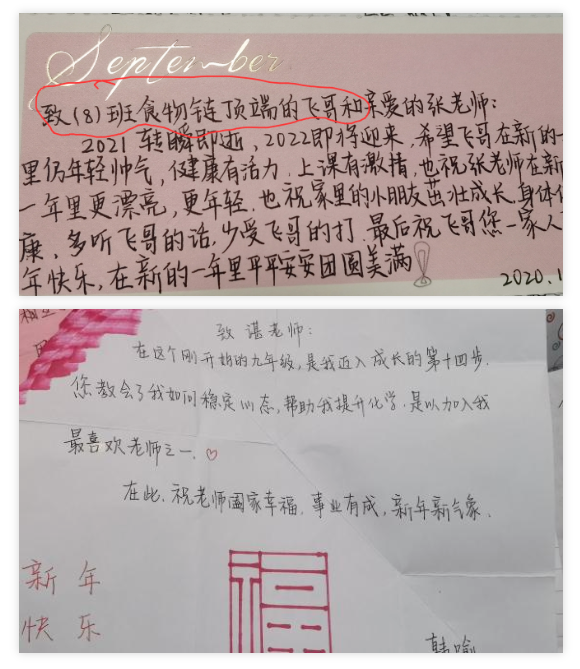 September
致(8)班食物链顶端的飞哥和亲爱的张老师:
2021转瞬即逝,2022即将迎来,希望飞哥在新的一
里仍年轻帅气,健康有活力.上课有激情,也祝张老师在新
一年里更漂亮,更年轻.也祝家里的小朋友茁壮成长.身体
康,多听飞哥的话,少受飞哥的打.最后祝飞哥您一家人
年快乐,在新的一年里平平安安团圆美满!
2020.1
致 谌老师:
在这个刚开始的九年级,是我迈入成长的第十四步.
您教会了我如何稳定心态,帮助我提升化学.是以加入我
最喜欢老师之一.♡
在此.祝老师阖家幸福.事业有成,新年新气象.
新 年
快 乐
福
韩喻